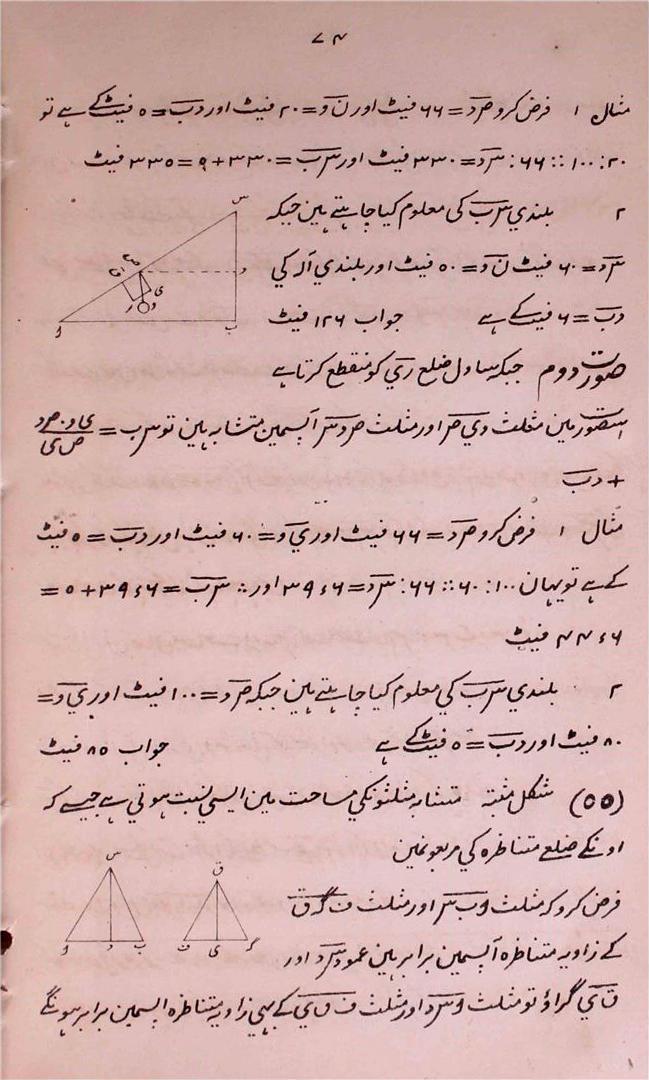 ۷۴
مثال ۱ فرض کرو صرد = ۶۶ فیٹ اور ن و = ۲۰ فیٹ اور دب = ۵ فیٹ کے ہے تو
۲۰ : ۱۰۰ :: ۶۶ : سرد = ۳۳۰ فیٹ اور سرب = ۳۳۰ + ۵ = ۳۳۵ فیٹ
۲ بلندی سرب کی معلوم کیا چاہتے ہین جبکہ
صرد = ۶۰ فیٹ ن و = ۵۰ فیٹ اور بلندی آلہ کی
دب = ۶ فیٹ کے ہے جواب ۱۲۶ فیٹ
صورت دوم جبکہ ساول ضلع ری کو منقطع کرتا ہے
اس صورت مین مثلث وی صر اور مثلث صرد سر آپسمین متشابہ ہین تو سرب = ی و . صرد / ص ی
+ دب
مثال ۱ فرض کرو صرد = ۶۶ فیٹ اور ی و = ۶۰ فیٹ اور دب = ۵ فیٹ
کے ہے تو یہان ۱۰۰ : ۶۰ :: ۶۶ : سرد = ۳۹٫۶ اور ∴ سرب = ۳۹٫۶ + ۵ =
۴۴٫۶ فیٹ
۲ بلندی سرب کی معلوم کیا چاہتے ہین جبکہ صرد = ۱۰۰ فیٹ اور ی و =
۸۰ فیٹ اور دب = ۵ فیٹ کے ہے جواب ۸۵ فیٹ
(۵۵) شکل مثبتہ متشابہ مثلثونکی مساحت مین ایسی نسبت ہوتی ہے جیسے کہ
اونکے ضلع متناظرہ کی مربعونمین
فرض کرو کہ مثلث و ب سر اور مثلث ف گ ق
کے زاویہ متناظرہ آپسمین برابر ہین عمود سرد اور
ق ی گراؤ تو مثلث و سرد اور مثلث ف ق ی کے بہی زاویہ متناظرہ آپسمین برابر ہونگے